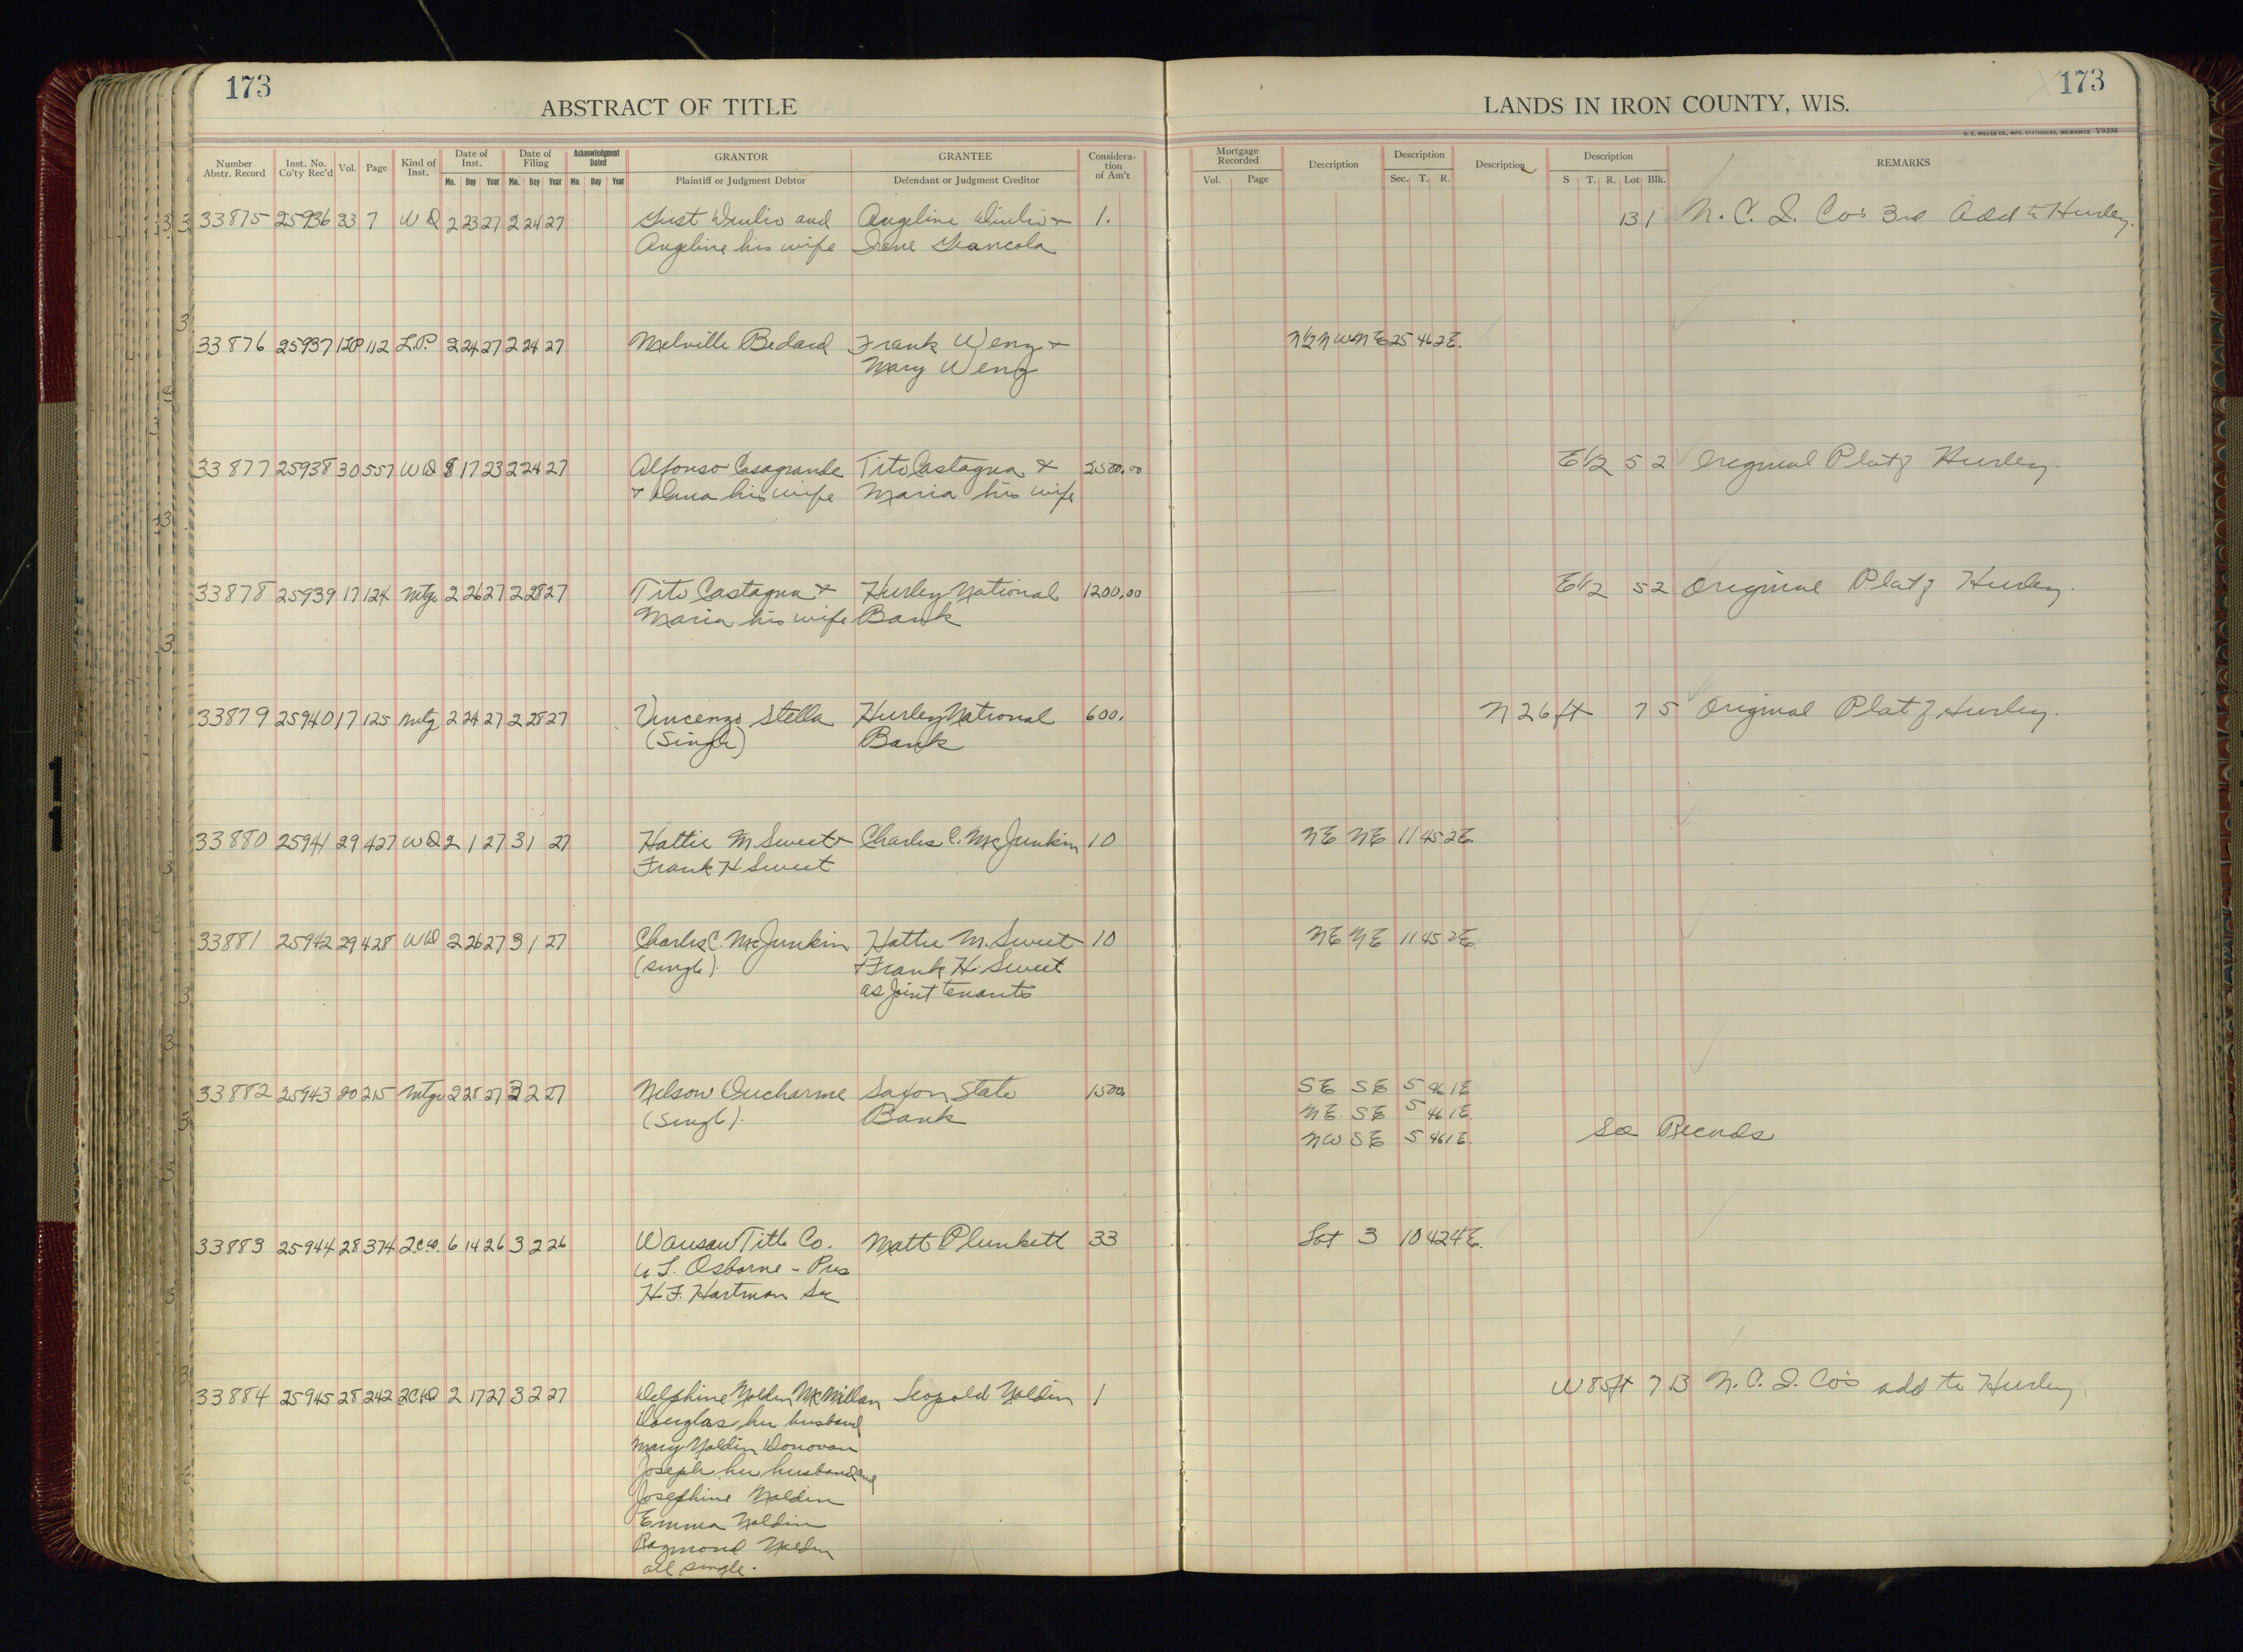 173
173
ABSTRACT OF TITLE
LANDS IN IRON COUNTY, WIS.
H. C. MILLER CO., MFG. STATIONERS, MILWAUKEE Y9398
Number Abstr. Record Inst. No. Co'ty Rec'd Vol. Page Kind of Inst. Date of Inst. Date of Filing Acknowledgment Dated GRANTOR GRANTEE Considera-tion of Am't Mortgage Recorded Decription Description Description Description REMARKS
Mo. Day Year Mo. Day Year Mo. Day Year Plaintiff or Judgment Debtor Defendant or Judgment Creditor Vol. Page Sec. T. R. S T. R. Lot Blk.
33875 25936 33 7 WD 2 23 27 2 24 27 and Angeline + 1. 13 1 N. C. I. Co's 3rd Add to Hurley.
Angeline his wife Irene Giancola
33876 25937 1LP 112 L.P. 2 24 27 2 24 27 Melville Bedard Frank Weng + N½ NW NE 25 46 2E.
Mary Weng
33877 25938 30 557 WD 8 17 23 2 24 27 Alfonso Casagrande Tito Castagna + 2500.00 E½ 5 2 Original Plat of Hurley.
+ his wife Maria his wife
33878 25939 17 124 Mtge 2 26 27 2 28 27 Tito Castagna + Hurley National 1200.00 E½ 5 2 Original Plat of Hurley.
Maria his wife Bank
33879 25940 17 125 Mtg 2 24 27 2 28 27 Vincenzo Stella Hurley National 600. N 26 ft 7 5 Original Plat of Hurley.
(Single) Bank
33880 25941 29 427 WD 2 1 27 3 1 27 Hattie M. Sweet + Charles C. McJunkin 10 NE NE 11 45 2E.
Frank H Sweet
33881 25942 29 428 WD 2 26 27 3 1 27 Charles C. McJunkin Hattie M. Sweet 10 NE NE 11 45 2E
(single). + Frank H. Sweet
as joint tenants
33882 25943 20 215 Mtge 2 28 27 3 2 27 Nelson Ducharme Saxon State 1500. SE SE 5 46 1E
(Single). Bank NE. SE 5 46 1E
NW SE 5 46 1E. See Records
33883 25944 28 374 2CD. 6 14 26 3 2 26 Wausau Title Co. Matt Plunkett 33 Lot 3 10 42 4E.
Osborne - Pres
H. F. Hartman Sec
33884 25945 28 242 2CD 2 17 27 3 2 27 Delphine Noldin McMillan Leopold Noldin 1 W 85 ft 7 13 N. C. I. Co's add to Hurley.
Douglas her husband
Mary Noldin Donovan
Joseph her husband and
Josephine Noldin
Emma Noldin
Raymond Noldin
all single.